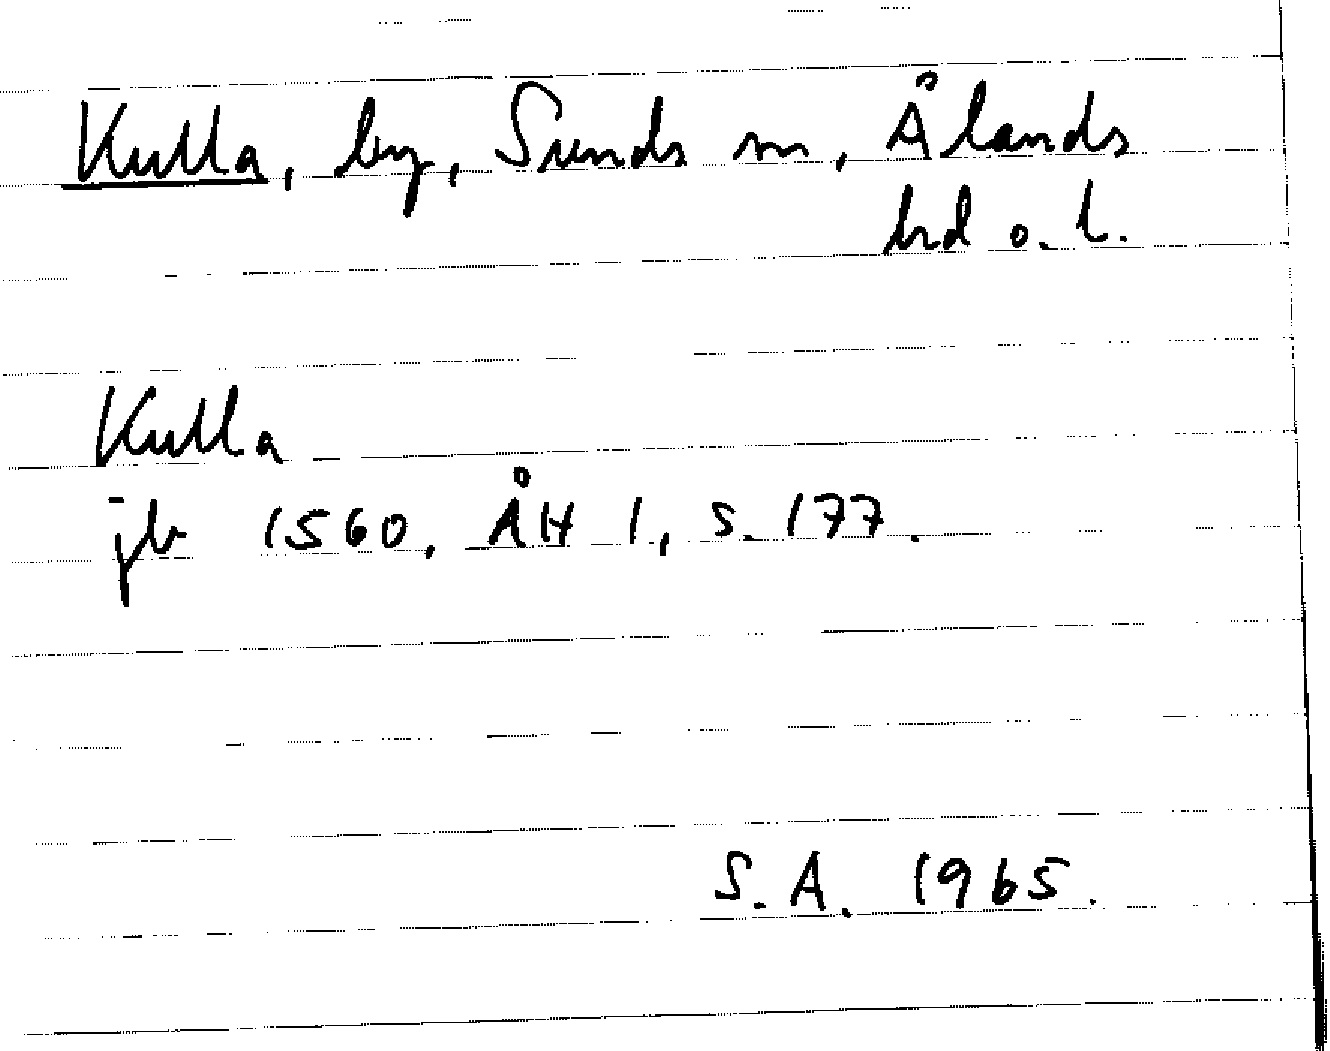 Kulla, by, Sunds sn, Ålands
hd o. l.
Kulla
jb 1560, ÅH 1, s. 177.
S.A. 1965.